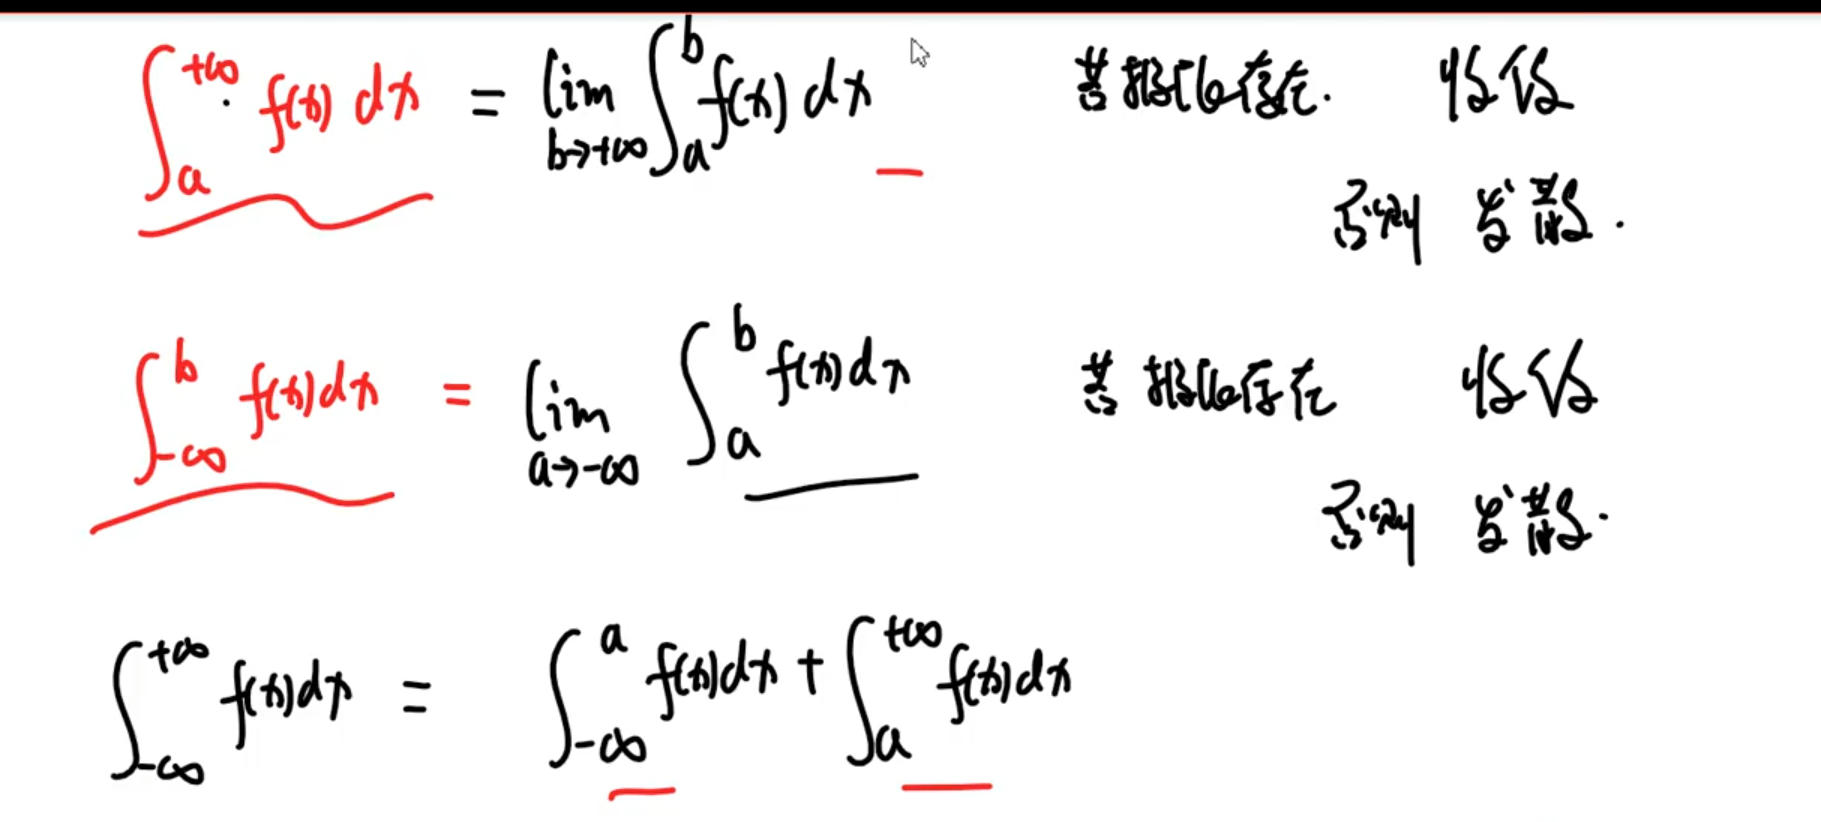 ∫_a^{+∞} f(x) dx = lim_{b→+∞} ∫_a^b f(x) dx 若极限存在. 收敛
否则 发散.
∫_{-∞}^b f(x)dx = lim_{a→-∞} ∫_a^b f(x)dx 若极限存在 收敛
否则 发散.
∫_{-∞}^{+∞} f(x)dx = ∫_{-∞}^a f(x)dx + ∫_a^{+∞} f(x)dx